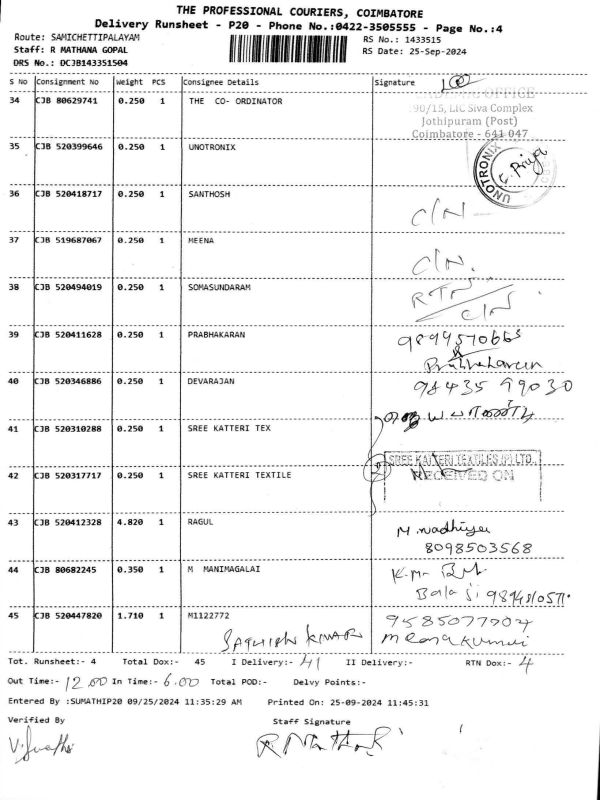 THE PROFESSIONAL COURIERS, COIMBATORE
Delivery Runsheet - P20 - Phone No.:0422-3505555 - Page No.:4
Route: SAMICHETTIPALAYAM RS No.: 1433515
Staff: R MATHANA GOPAL RS Date: 25-Sep-2024
DRS No.: DCJB143351504
S No Consignment No Weight PCS Consignee Details Signature
34 CJB 80629741 0.250 1 THE CO- ORDINATOR OFFICE
90/15, LIC Siva Complex
Jothipuram (Post)
Coimbatore - 641 047
35 CJB 520399646 0.250 1 UNOTRONIX UNOTRONIX
36 CJB 520418717 0.250 1 SANTHOSH C/N
37 CJB 519687067 0.250 1 MEENA C/N.
38 CJB 520494019 0.250 1 SOMASUNDARAM RTN
C/N
39 CJB 520411628 0.250 1 PRABHAKARAN 9899570665
Prabhakaran
40 CJB 520346886 0.250 1 DEVARAJAN 98435 99030
41 CJB 520310288 0.250 1 SREE KATTERI TEX
SREE KATTERI TEXTILES (P) LTD.,
42 CJB 520317717 0.250 1 SREE KATTERI TEXTILE RECEIVED ON
43 CJB 520412328 4.820 1 RAGUL
8098503568
44 CJB 80682245 0.350 1 M MANIMAGALAI
Balaji
45 CJB 520447820 1.710 1 M1122772 9585077704
Meenakumari
Tot. Runsheet:- 4 Total Dox:- 45 I Delivery:- 41 II Delivery:- RTN Dox:- 4
Out Time:- 12.00 In Time:- 6.00 Total POD:- Delvy Points:-
Entered By :SUMATHIP20 09/25/2024 11:35:29 AM Printed On: 25-09-2024 11:45:31
Verified By Staff Signature